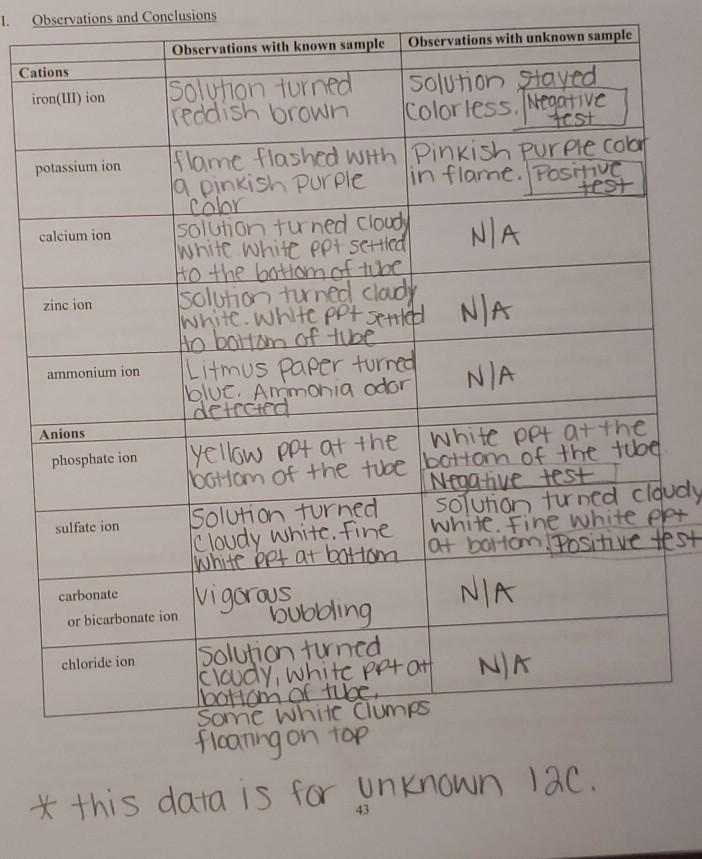 I. Observations and Conclusions
Observations with known sample Observations with unknown sample
Cations
iron(III) ion
Solution turned
reddish brown
Solution stayed
colorless. Negative
test
potassium ion
flame flashed with
a pinkish purple
color
Pinkish purple color
in flame. Positive
test
calcium ion
solution turned cloudy
white. white ppt settled
to the bottom of tube
N/A
zinc ion
solution turned cloudy
white. White ppt settled
to bottom of tube
N/A
ammonium ion
Litmus paper turned
blue. Ammonia odor
detected
N/A
Anions
phosphate ion
yellow ppt at the
bottom of the tube
White ppt at the
bottom of the tube
Negative test
sulfate ion
Solution turned
cloudy white. Fine
white ppt at bottom
solution turned cloudy
white. Fine white ppt
at bottom. Positive test
carbonate
or bicarbonate ion
Vigorous
bubbling
N/A
chloride ion
Solution turned
cloudy, white ppt at
bottom of tube.
Some white clumps
floating on top
N/A
* this data is for unknown 12C.
43